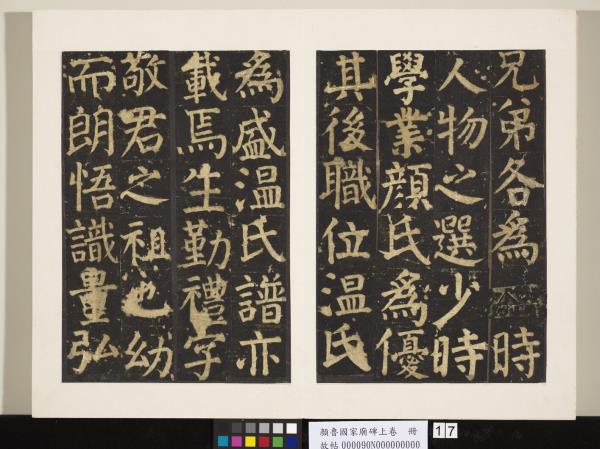 兄弟各為一時
人物之選少時
學業顏氏為優
其後職位溫氏
為盛溫氏譜亦
載焉生勤禮字
敬君之祖也幼
而朗悟識量弘
顏魯國家廟碑上卷 冊
故帖 000090N000000000
17